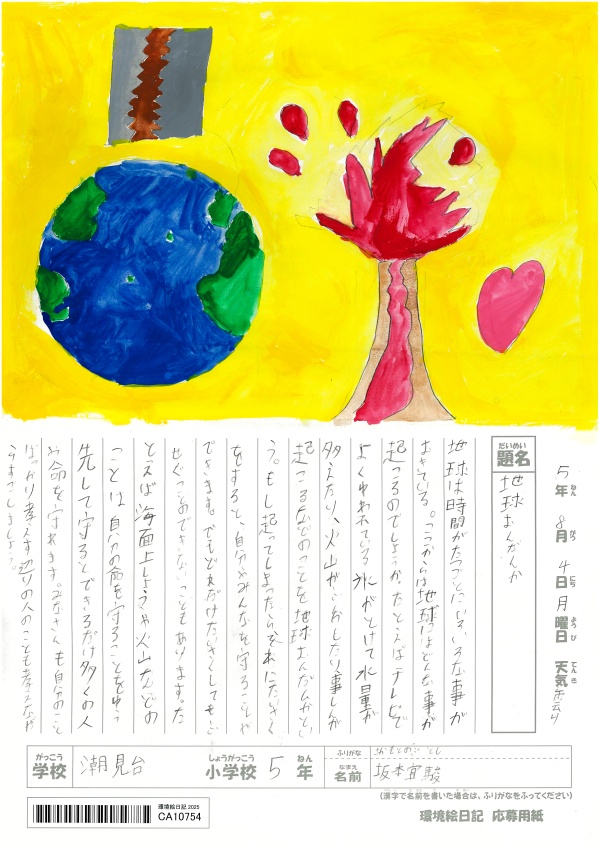 5年ねん 8月がつ 4日にち 月曜日ようび 天気てんき
だいめい
題名 地球おんがんか
地球は時間がたつごとにいろいろな事が
おきている。ここからは地球にはどんな事が
起こるのでしょうか。たとえばテレビで
よくゆわれている氷がとけて水量が
多えたり、火山が したり、事しんが
起こるなどのことを地球おんだんかとい
う。もし起ってしまったらそれにたいさく
をすると、自分やみんなを守ることが
できます。でもどれだけたいさくしてもふ
せぐことのできないこともあります。た
とえば海面上しょうや火山などの
ことは自分の命を守ることをゆう
先して守るとできるだけ多くの人
の命を守れます。みなさんも自分のこと
ばっかり考えず辺りの人のことも考えなが
らすごしましょう。
がっこう
学校 潮見台
しょうがっこう ねん
小学校 5 年
ふりがな さかもと
なまえ
名前 坂本宜駿
(漢字で名前を書いた場合は、ふりがなをふってください)
環境絵日記 応募用紙
環境絵日記 2025
CA10754